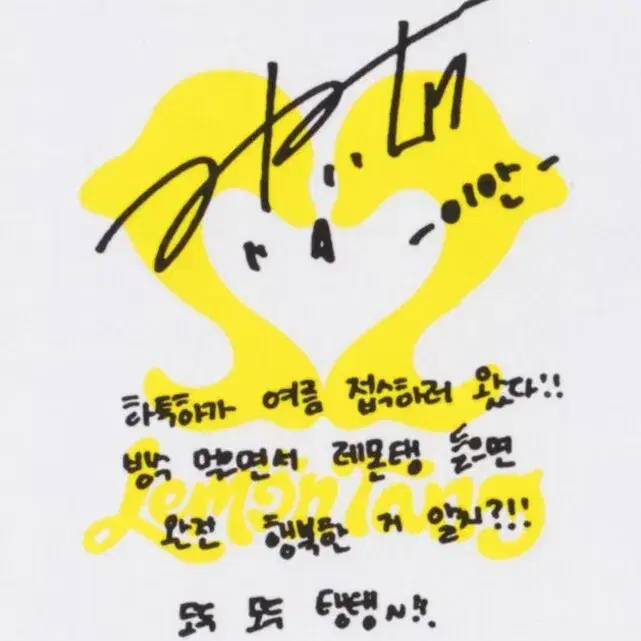 -이안-
하투하가 여름 접수하러 왔다!!
빙수 먹으면서 레몬탱 들으면
Lemon Tang
완전 행복한 거 알지?!!
탱탱~!!